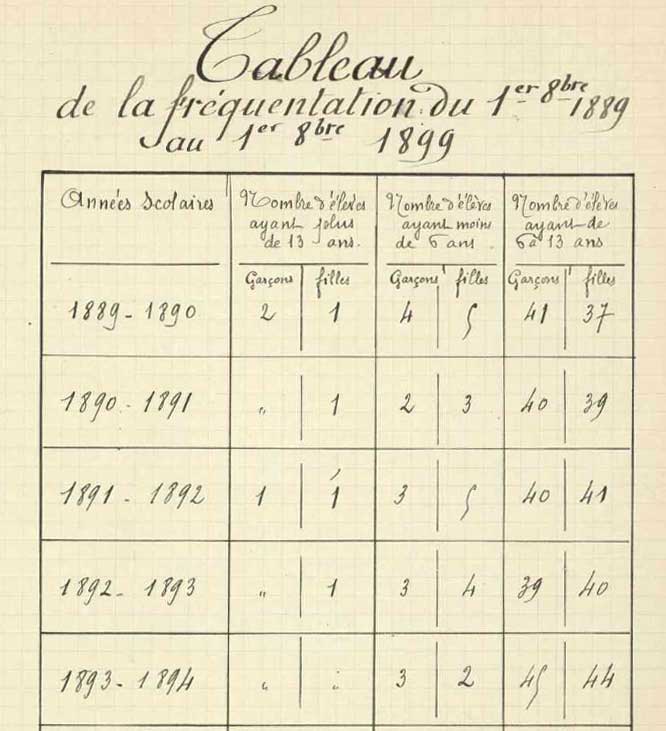 Tableau
de la fréquentation du 1er 8bre 1889
au 1er 8bre 1899
Années Scolaires | Nombre d'élèves ayant plus de 13 ans. | Nombre d'élèves ayant moins de 6 ans | Nombre d'élèves ayant de 6 à 13 ans
Garçons | filles | Garçons | filles | Garçons | filles
1889-1890 | 2 | 1 | 4 | 5 | 41 | 37
1890-1891 | " | 1 | 2 | 3 | 40 | 39
1891-1892 | 1 | 1 | 3 | 5 | 40 | 41
1892-1893 | " | 1 | 3 | 4 | 39 | 40
1893-1894 | " | " | 3 | 2 | 45 | 44